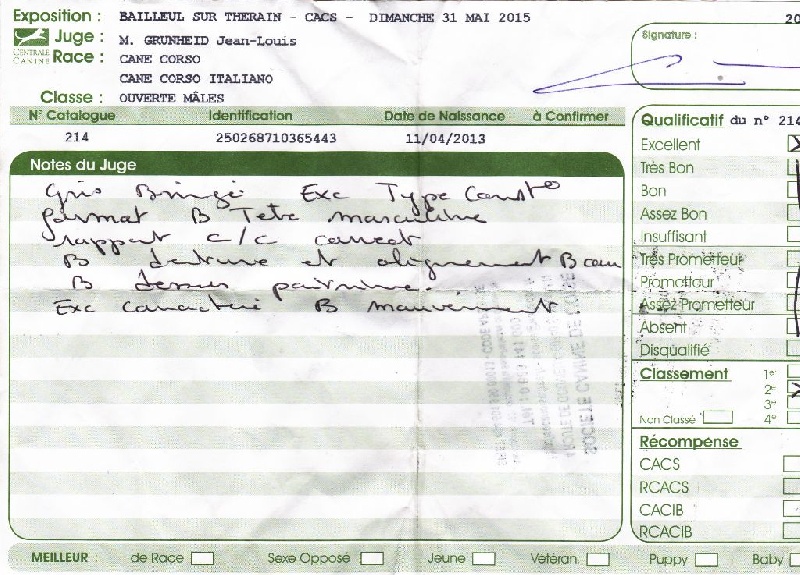 Exposition : BAILLEUL SUR THERAIN - CACS - DIMANCHE 31 MAI 2015
20
CENTRALE CANINE
Juge : M. GRUNHEID Jean-Louis
Race : CANE CORSO
CANE CORSO ITALIANO
Classe : OUVERTE MÂLES
Signature :
N° Catalogue Identification Date de Naissance à Confirmer
214 250268710365443 11/04/2013
Notes du Juge
Gris Bringé Exc Type Const°
format B Tete masculine
rapport c/c correct
B denture et alignement B cou
B dessus poitrine.
Exc caractère B mouvement
Qualificatif du n° 214
Excellent
Très Bon
Bon
Assez Bon
Insuffisant
Très Prometteur
Prometteur
Assez Prometteur
Absent
Disqualifié
Classement 1e
2e
3e
Non Classé 4e
Récompense
CACS
RCACS
CACIB
RCACIB
MEILLEUR : de Race Sexe Opposé Jeune Vétéran Puppy Baby